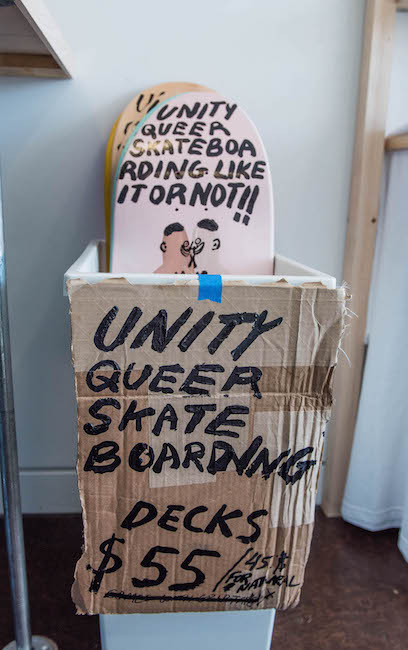 UNITY
QUEER
SKATEBOA
RDING LIKE
IT OR NOT!!
UNITY
QUEER
SKATE
BOARDNNG
DECKS
$55 /45$
FOR NATURAL